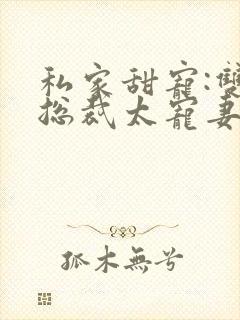 私家甜寵:雙
总裁太寵妻
孤木無兮